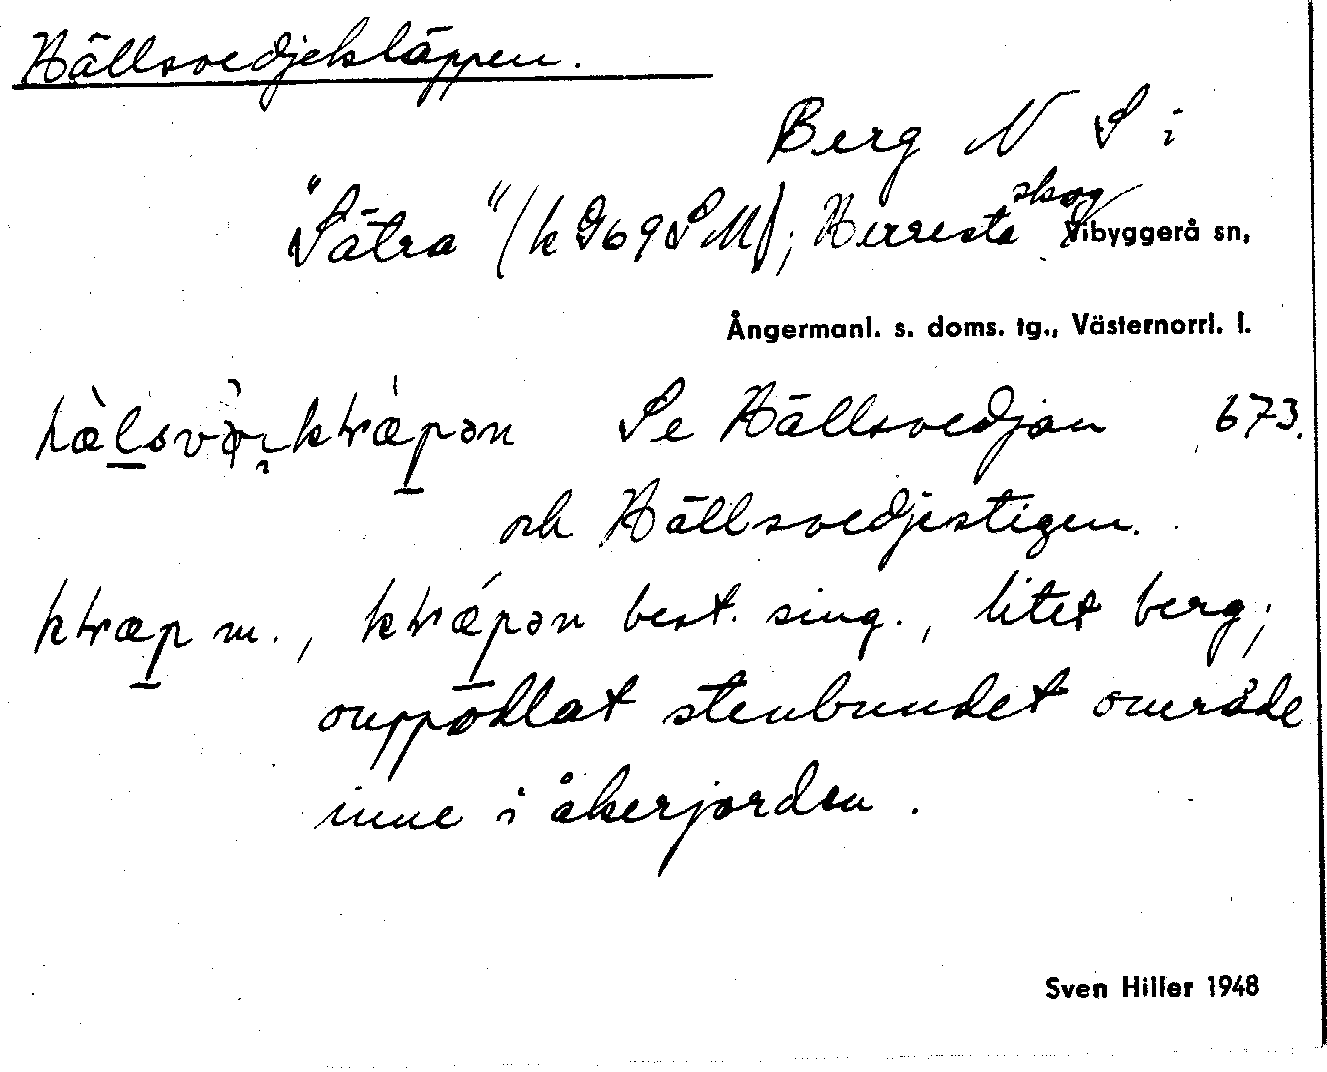 Hällsvedjekläppen.
Berg N S i
"Sätra" (k 969 S M); Herresta skog Vibyggerå sn,
Ångermanl. s. doms. tg., Västernorrl. l.
Se Hällsvedjan 673.
och Hällsvedjestigen.
m., best. sing., litet berg;
ouppodlat stenbundet område
inne i åkerjorden.
Sven Hiller 1948